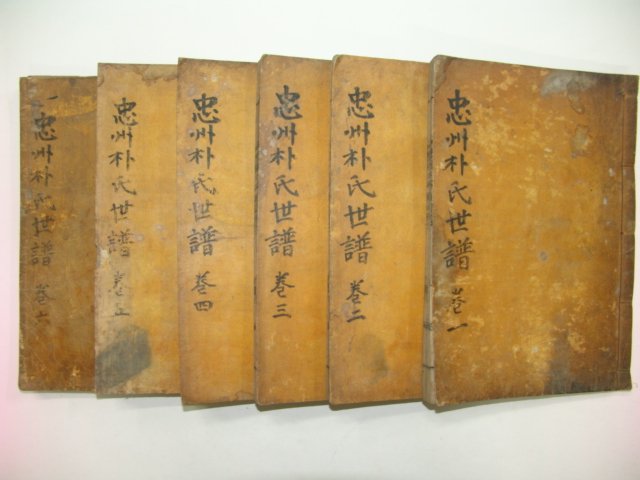 忠州朴氏世譜 卷一
忠州朴氏世譜 卷二
忠州朴氏世譜 卷三
忠州朴氏世譜 卷四
忠州朴氏世譜 卷五
忠州朴氏世譜 卷六